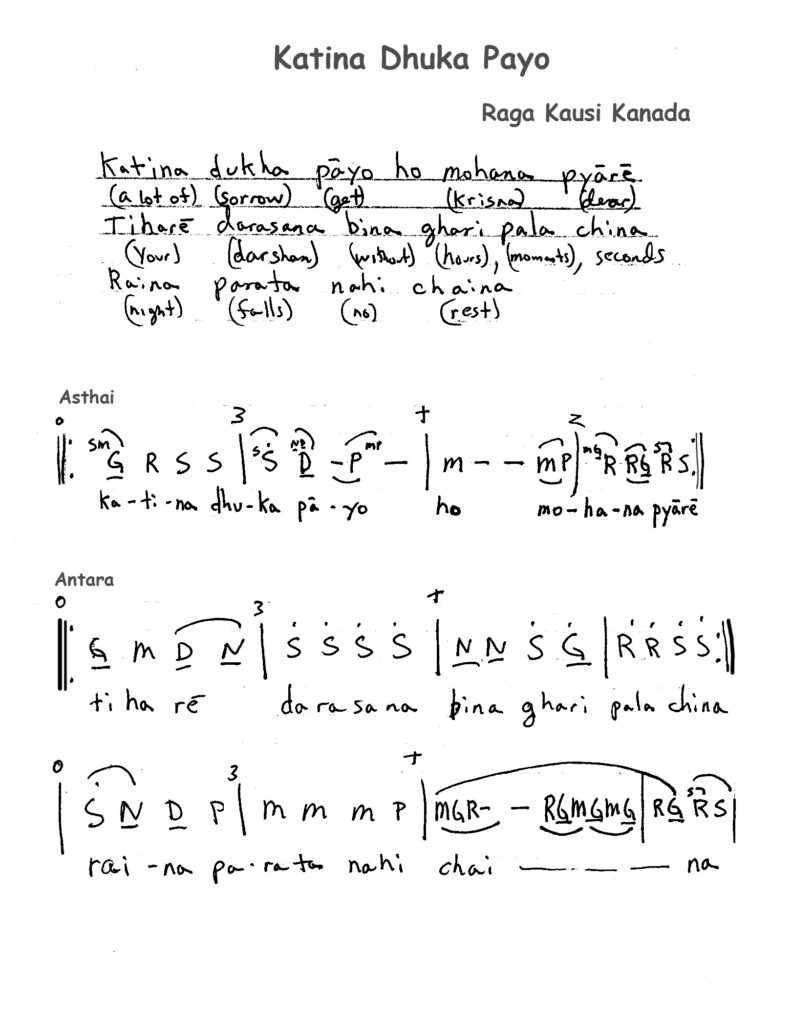 Katina Dhuka Payo
Raga Kausi Kanada
Katina dukha pāyo ho mohana pyārē
(a lot of) (sorrow) (get) (krisna) (dear)
Tiharē darasana bina ghari pala china
(your) (darshan) (without) (hours), (moments), seconds
Raina parata nahi chaina
(night) (falls) (no) (rest)
Asthai
0 3 + 2
‖: SM G̲ R S S | S Ṡ ND D̲ - P MP - | m - - m P | mG R R G̲ R S :‖
ka-ti-na dhu-ka pā-yo ho mo-ha-na pyārē
Antara
0 3 +
‖: G̲ m D̲ N̲ | Ṡ Ṡ Ṡ Ṡ | N̲ N̲ Ṡ Ġ̲ | Ṙ Ṙ Ṡ Ṡ :‖
ti ha rē da ra sa na bina ghari pala china
0 3 +
| Ṡ N̲ D̲ P | m m m P | mGR- - RG̲mG̲mG̲ | RG̲ R S |
rai -na pa-rata nahi chai — — — na